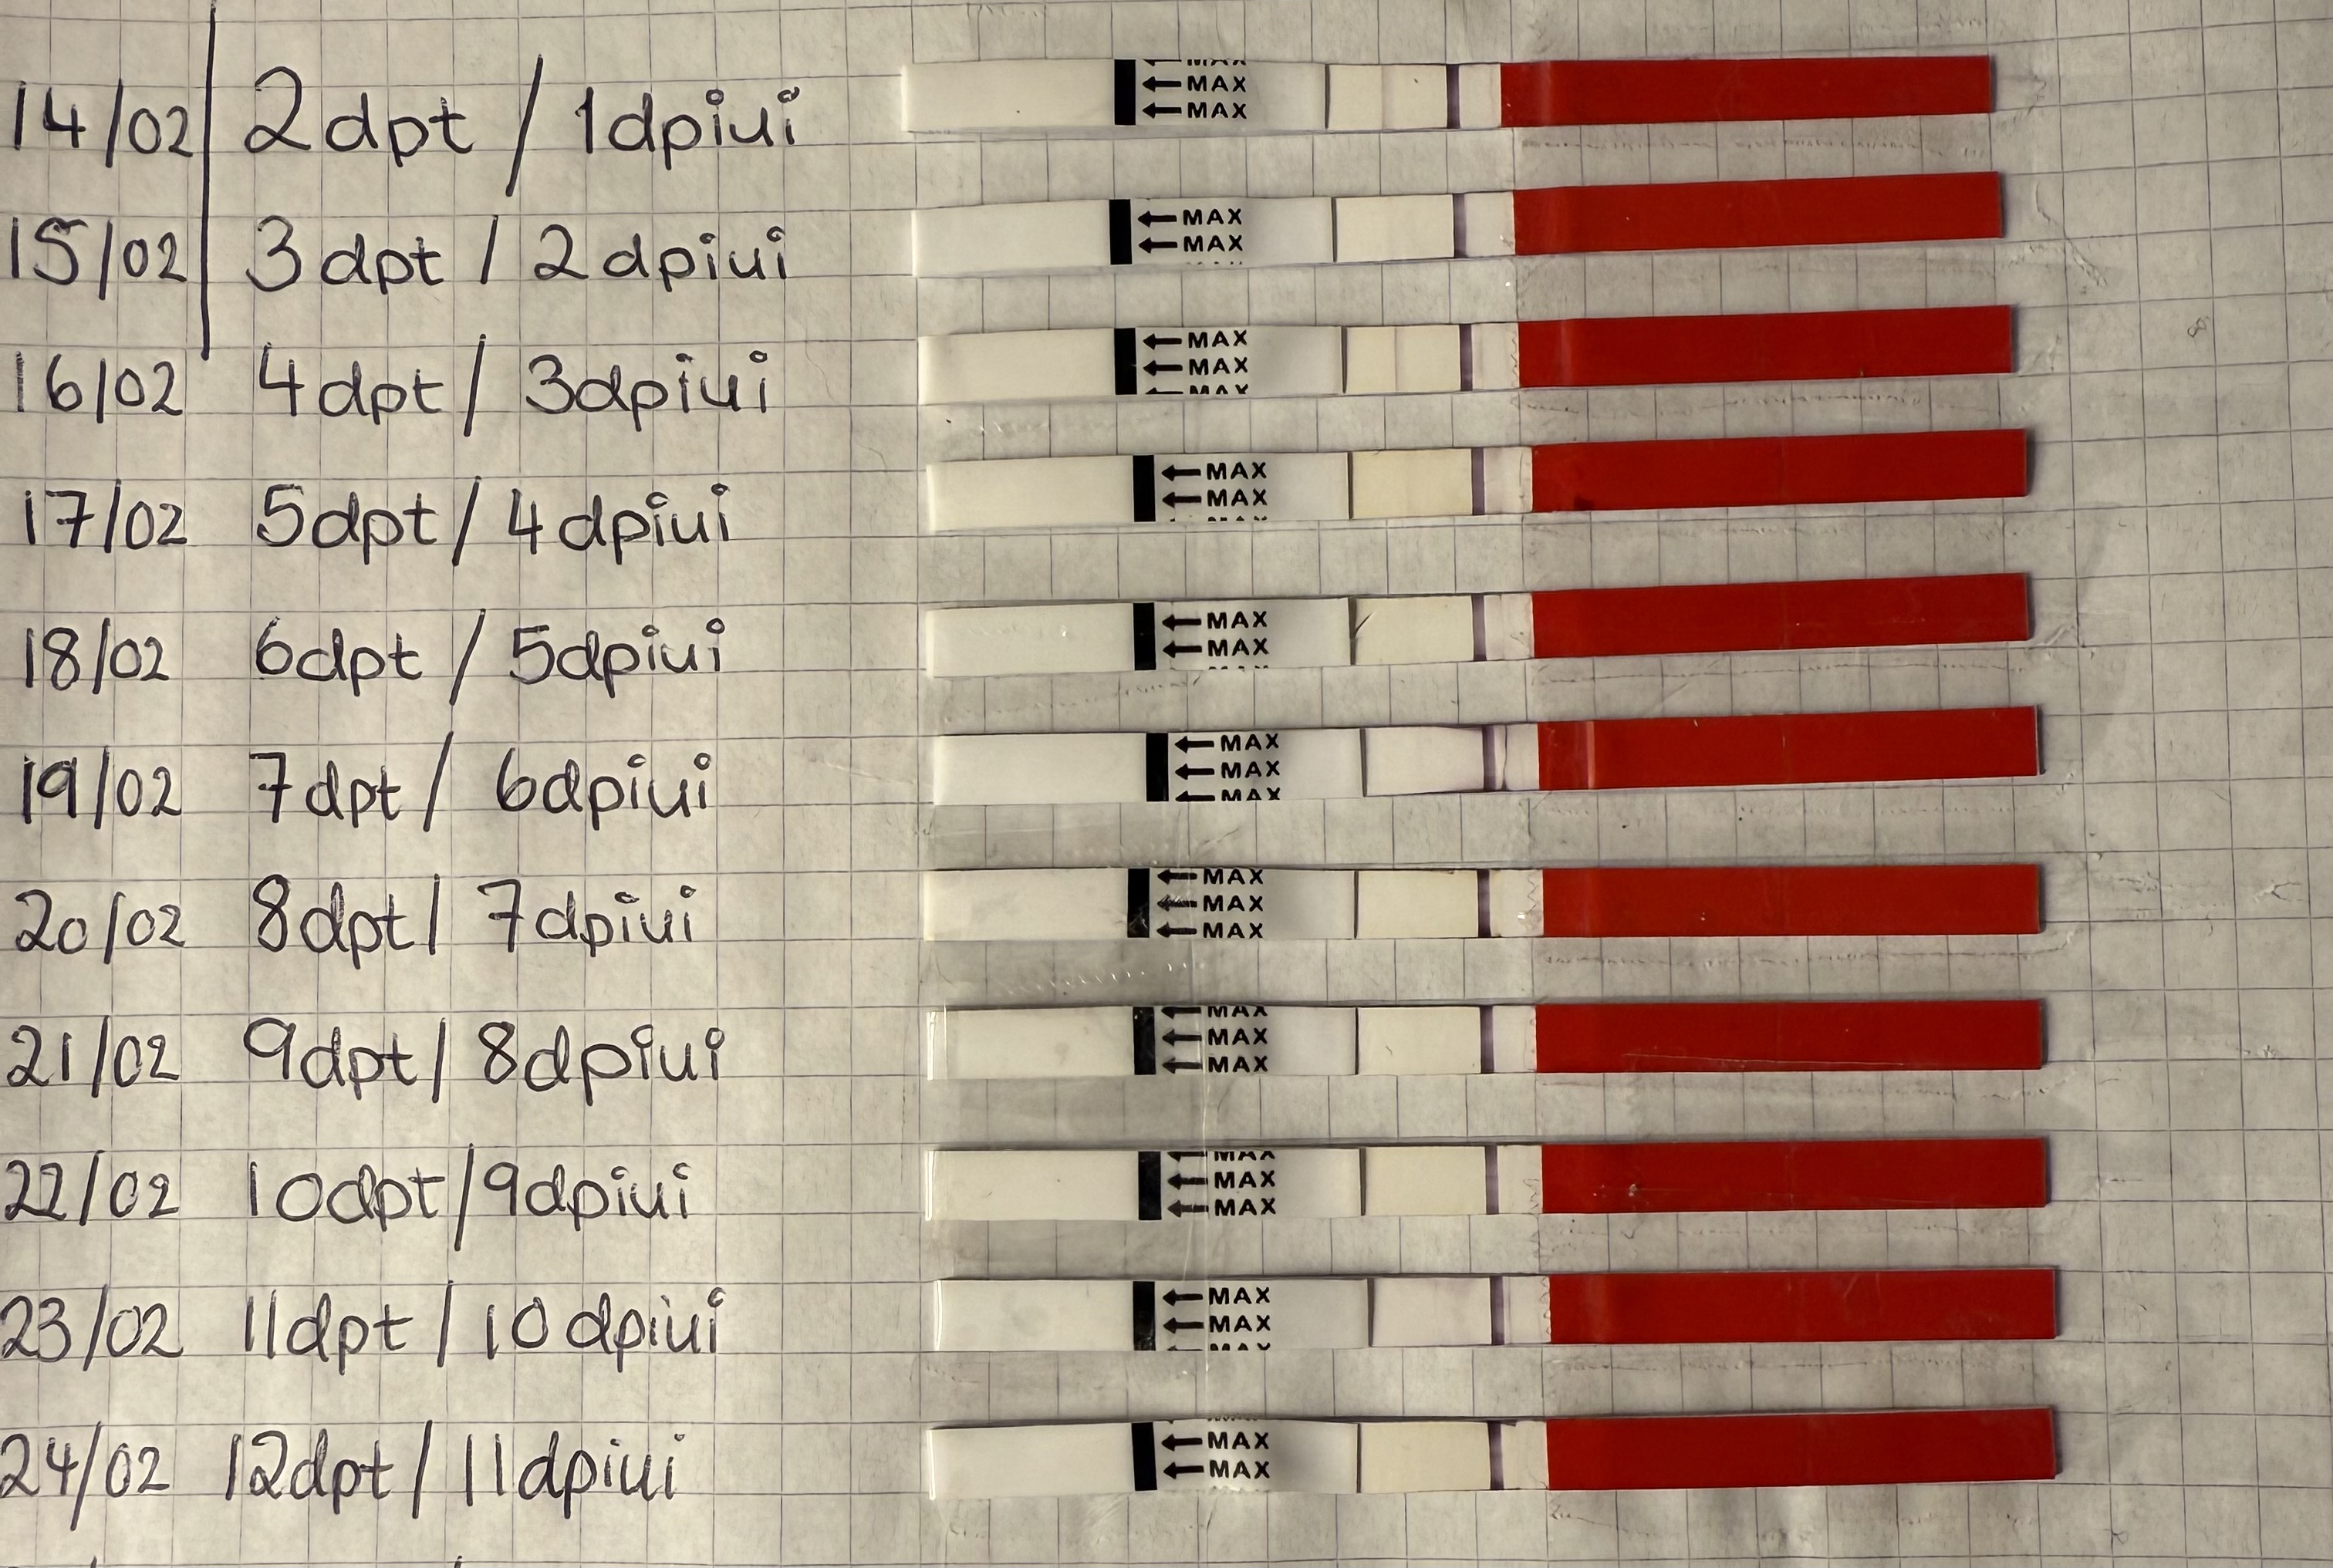 14/02 2dpt / 1dpiui MAX MAX MAX
15/02 3dpt / 2dpiui MAX MAX
16/02 4dpt / 3dpiui MAX MAX MAX
17/02 5dpt / 4dpiui MAX MAX MAX
18/02 6dpt / 5dpiui MAX MAX
19/02 7dpt / 6dpiui MAX MAX MAX
20/02 8dpt / 7dpiui MAX MAX MAX
21/02 9dpt / 8dpiui MAX MAX MAX
22/02 10dpt / 9dpiui MAX MAX MAX
23/02 11dpt / 10dpiui MAX MAX MAX
24/02 12dpt / 11dpiui MAX MAX